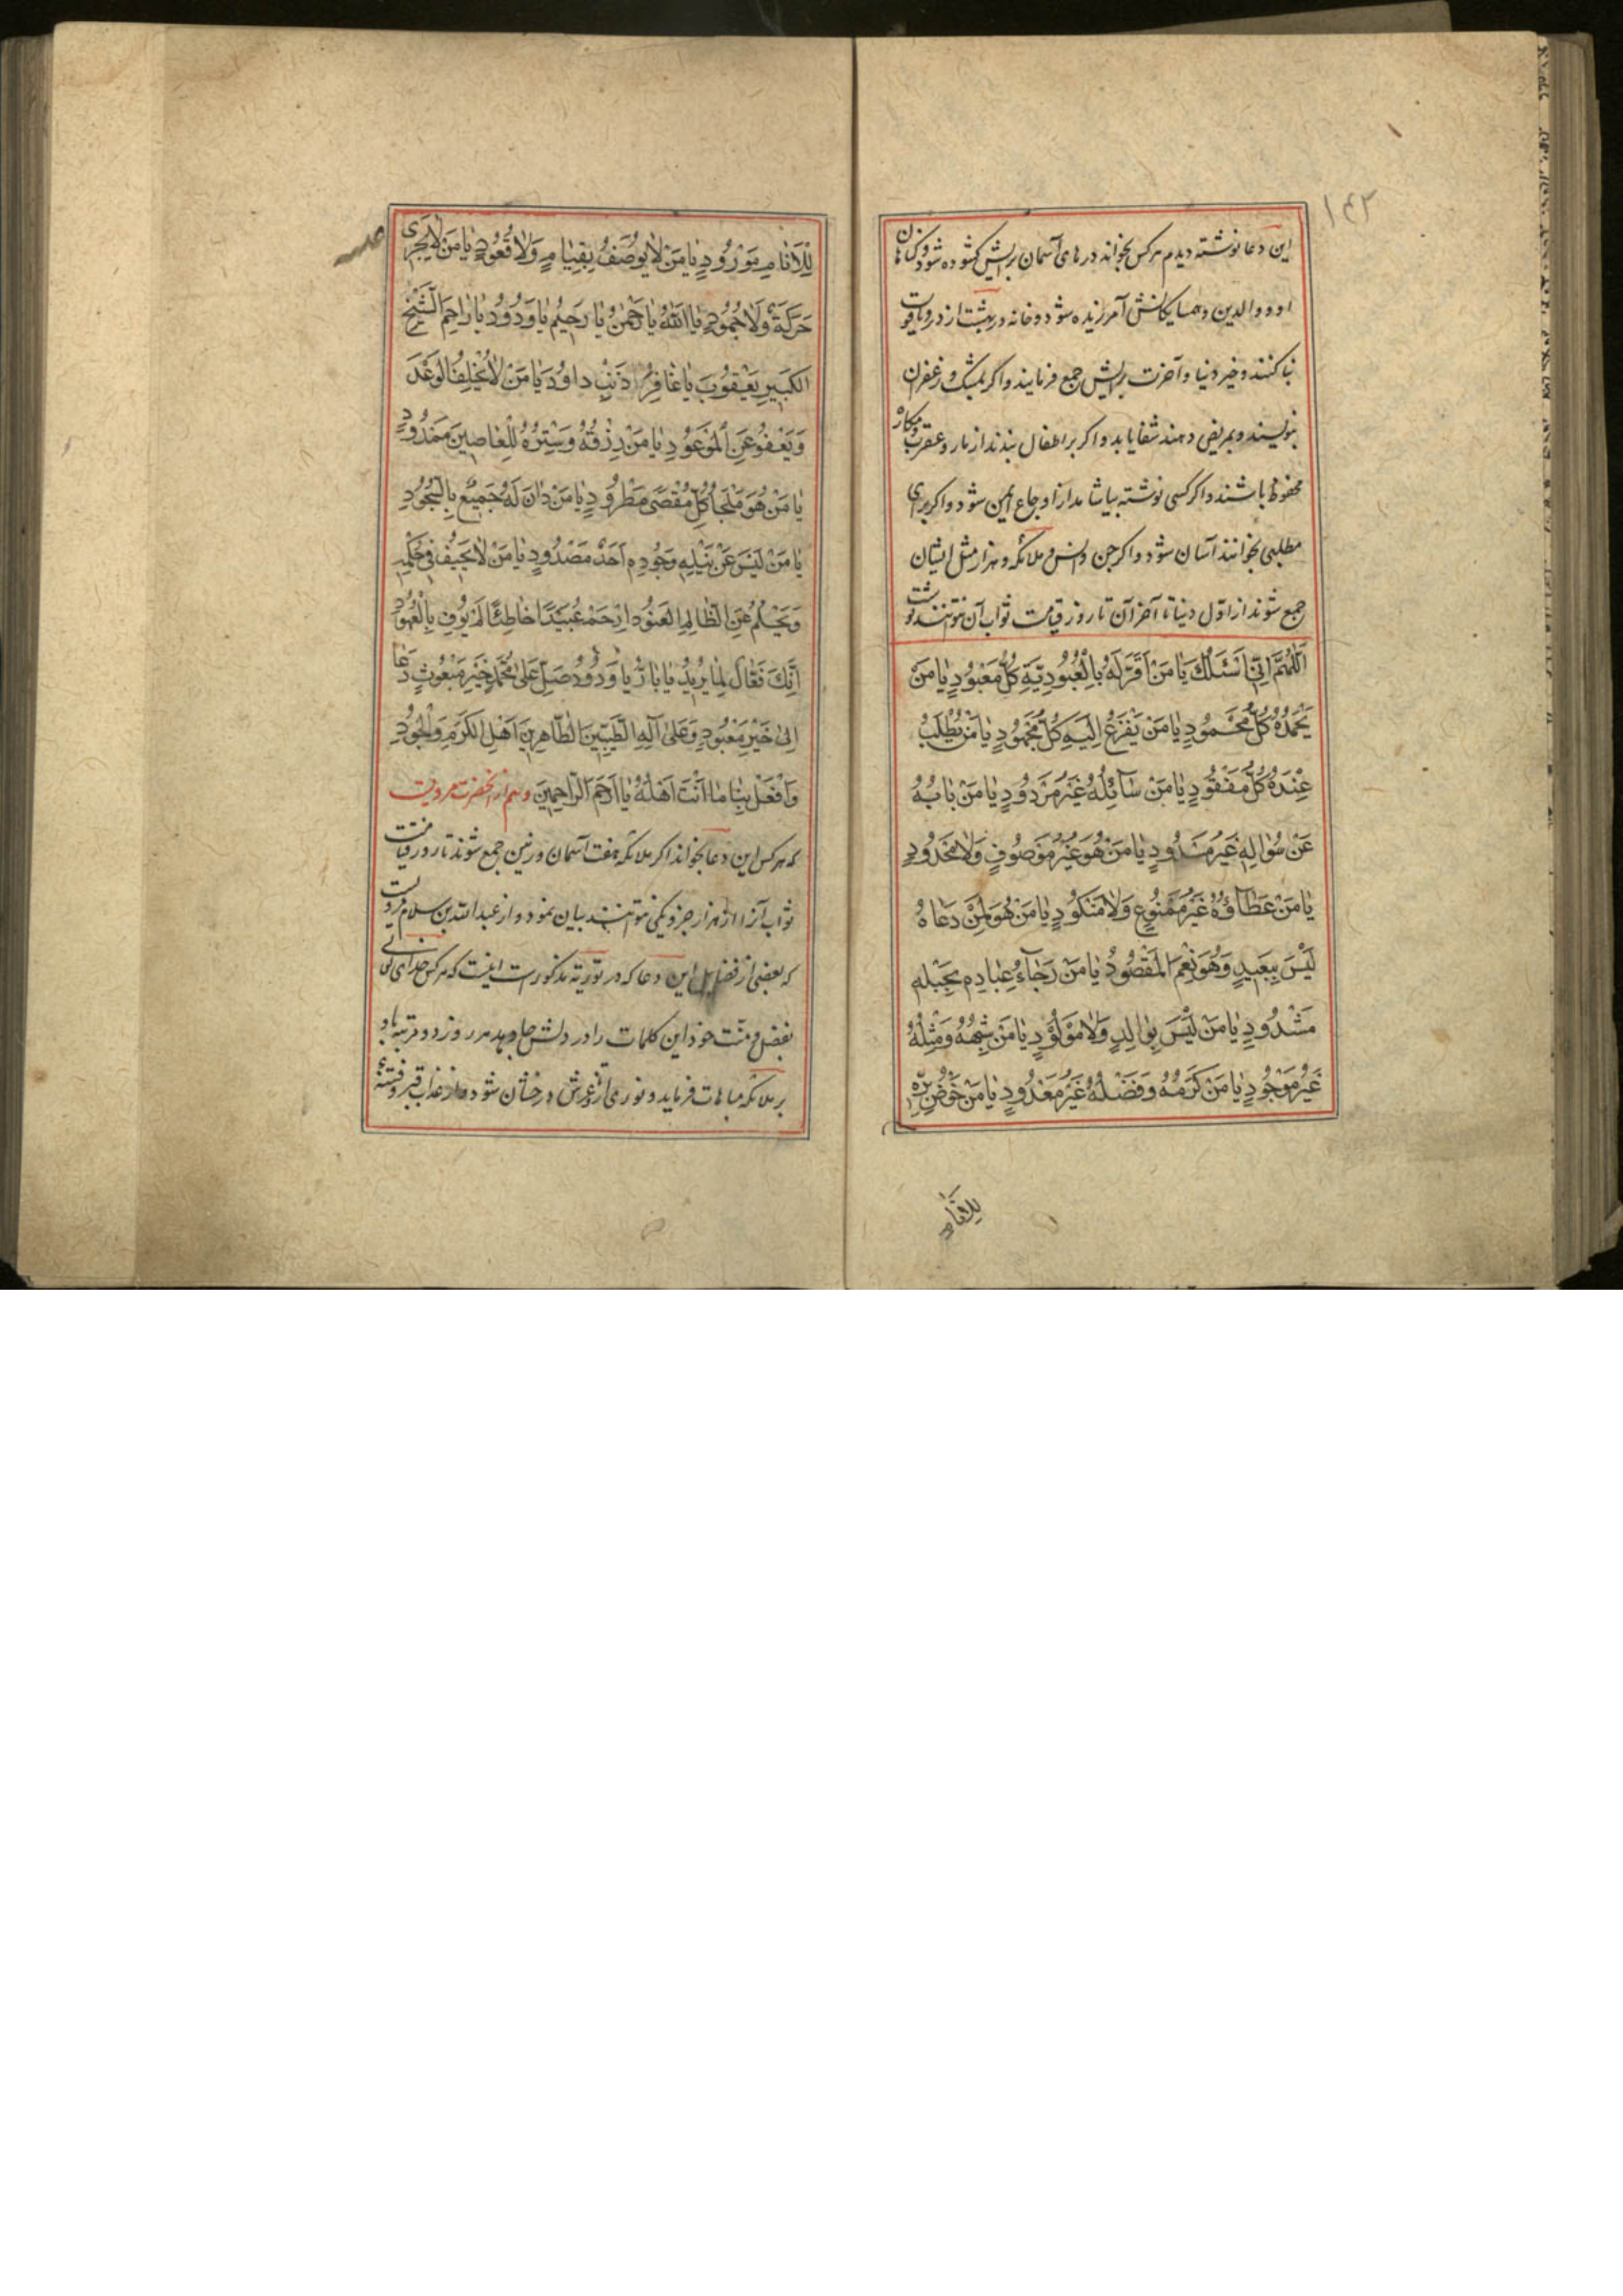 ۱۴۲
این دعا نوشته دیدم هرکس بخواند درهای آسمان برایش کشوده شود و کناهان
او و والدین و همسایکانش آمرزیده شود و خانه در بهشت از در و یاقوت
بنا کنند و خیر دنیا و آخرت برایش جمع فرمایند و اکر بمشک و زعفران
بنویسند و بمریض دهند شفا یابد و اکر بر اطفال بندند از مار و عقرب
محفوظ باشند و اکر کسی نوشته بیاشامد از اوجاع ایمن شود و اکر برای
مطلبی بخوانند آسان شود و اکر جن و انس و ملائکه و هزار مثل ایشان
جمع شوند از اول دنیا تا آخر آن تا روز قیامت ثواب آن نتوانند نوشت
اَللّهُمَّ اِنّی اَسْئَلُكَ یا مَنْ اَقَرَّ لَهُ بِالْعُبُودِیَّةِ كُلُّ مَعْبُودٍ یا مَنْ
یَحْمَدُهُ كُلُّ مَحْمُودٍ یا مَنْ یَفْزَعُ اِلَیْهِ كُلُّ مَجْهُودٍ یا مَنْ یُطْلَبُ
عِنْدَهُ كُلُّ مَفْقُودٍ یا مَنْ سَآئِلُهُ غَیْرُ مَرْدُودٍ یا مَنْ بابُهُ
عَنْ سُؤالِهِ غَیْرُ مَسْدُودٍ یا مَنْ هُوَ غَیْرُ مَوْصُوفٍ وَلا مَحْدُودٍ
یا مَنْ عَطآؤُهُ غَیْرُ مَمْنُوعٍ وَلا مَنْكُودٍ یا مَنْ هُوَ لِمَنْ دَعاهُ
لَیْسَ بِبَعِیدٍ وَهُوَ نِعْمَ الْمَقْصُودُ یا مَنْ رَجآءُ عِبادِهِ بِحَبْلِهِ
مَشْدُودٍ یا مَنْ لَیْسَ بِوالِدٍ وَلا مَوْلُودٍ یا مَنْ شِبْهُهُ وَمِثْلُهُ
غَیْرُ مَوْجُودٍ یا مَنْ كَرَمُهُ وَفَضْلُهُ غَیْرُ مَعْدُودٍ یا مَنْ حَوْضُ بِرِّهِ
لِلْاَنامِ
لِلْاَنامِ مَوْرُودٍ یا مَنْ لا یُوصَفُ بِقِیامٍ وَلا قُعُودٍ یا مَنْ لا یَجْری
حَرَكَةٌ وَلا جُمُودٍ یا اَللهُ یا رَحْمنُ یا رَحِیمُ یا وَدُودُ یا راحِمَ الشَّیْخِ
الْكَبِیرِ یَعْقُوبَ یا غافِرَ ذَنْبِ داوُدَ یا مَنْ لا یُخْلِفُ الْوَعْدَ
وَیَعْفُو عَنِ الْمَوْعُودِ یا مَنْ رِزْقُهُ وَسِتْرُهُ لِلْعاصِینَ مَمْدُودٍ
یا مَنْ هُوَ مَلْجَأُ كُلِّ مُقْصیً مَطْرُودٍ یا مَنْ دانَ لَهُ جَمِیعٌ بِالسُّجُودِ
یا مَنْ لَیْسَ عَنْ نَیْلِهِ وَجُودِهِ اَحَدٌ مَصْدُودٍ یا مَنْ لا یَحِیفُ فی حُكْمِهِ
وَیَحْلُمُ عَنِ الظّالِمِ الْعَنُودِ اِرْحَمْ عُبَیْدًا خاطِئًا لَمْ یُوفِ بِالْعُهُودِ
اِنَّكَ فَعّالٌ لِما یُرِیدُ یا بارُّ یا وَدُودُ صَلِّ عَلی مُحَمَّدٍ خَیْرِ مَبْعُوثٍ دَعا
اِلی خَیْرِ مَعْبُودٍ وَعَلی آلِهِ الطَّیِّبِینَ الطّاهِرِینَ اَهْلِ الْكَرَمِ وَالْجُودِ
وَافْعَلْ بِنا ما اَنْتَ اَهْلُهُ یا اَرْحَمَ الرّاحِمِینَ و هم از آنحضرت مرویست
که هرکس این دعا بخواند اکر ملائکه هفت آسمان و زمین جمع شوند تا روز قیامت
ثواب آنرا از هزار جزو یکی نتوانند بیان نمود و از عبدالله بن سلام مرویست
که بعضی از فضایل این دعا که در توریة مذکورست اینست که هرکس خدای تعالی
بفضل و منت خود این کلمات را در دلش جا دهد هر روز دو مرتبه باو
بر ملائکه مباهات فرماید و نوری از عرش درخشان شود و از عذاب قبر و فتنه